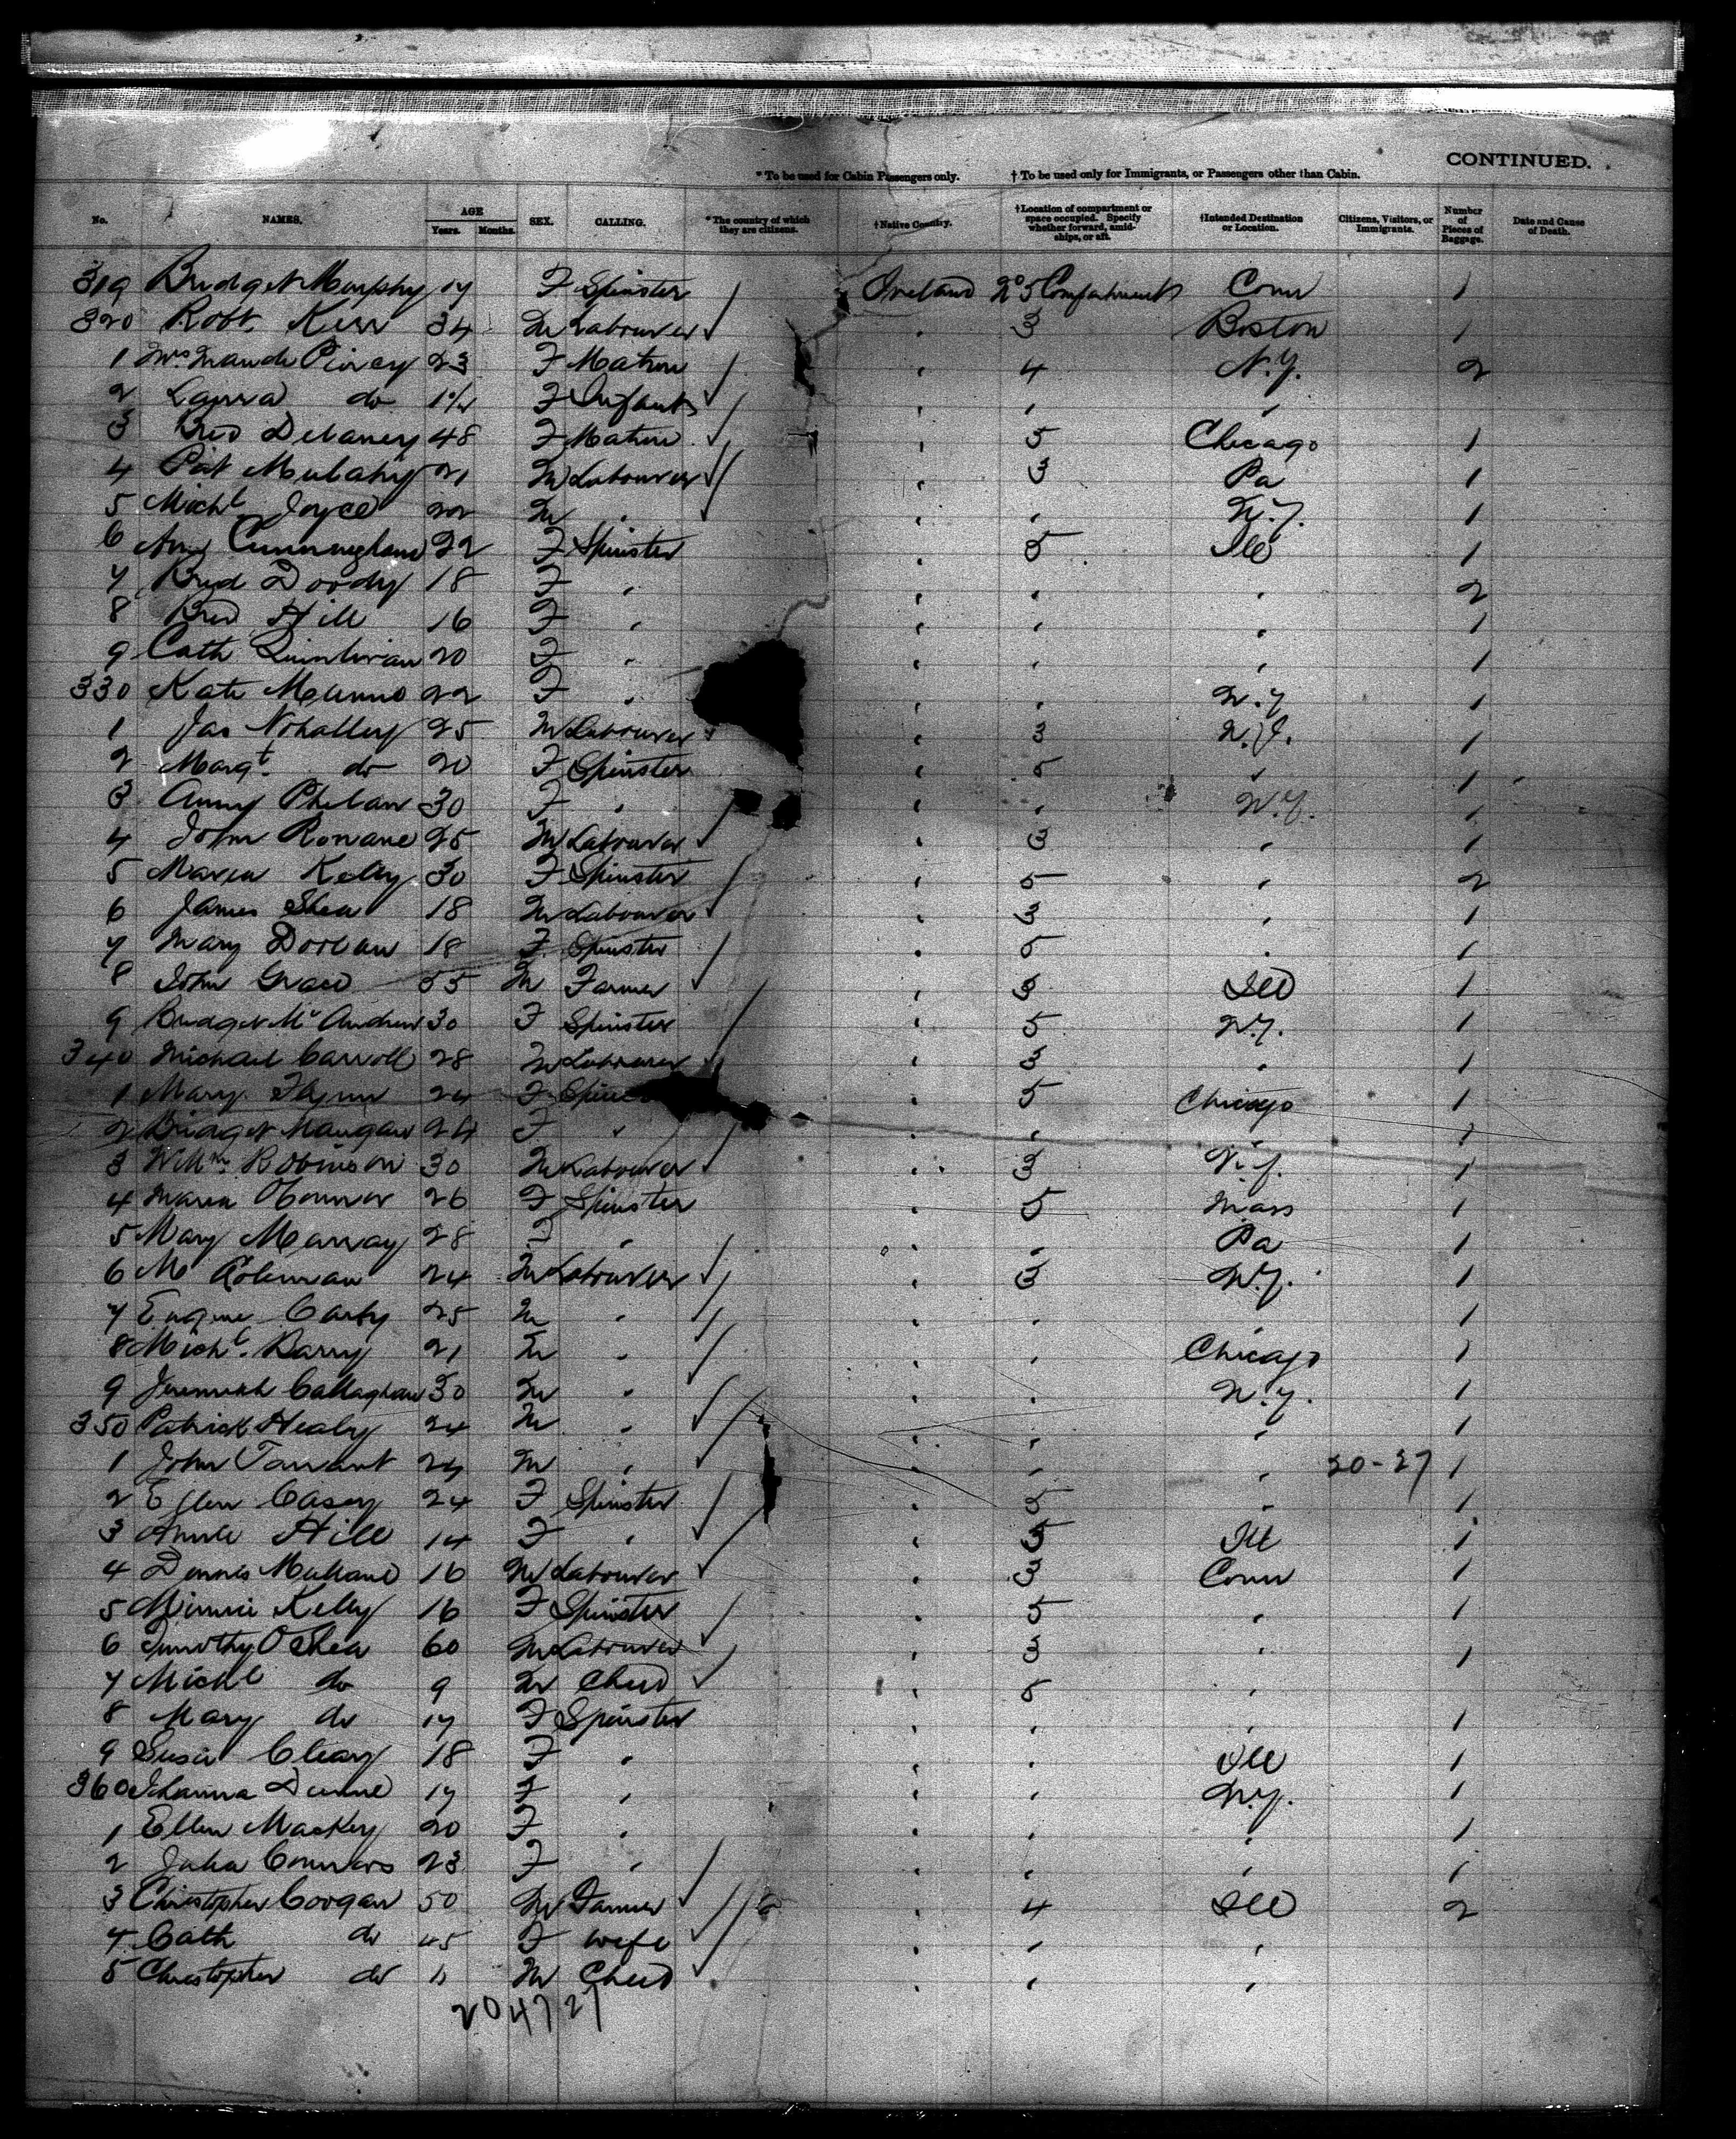 CONTINUED.
* To be used for Cabin Passengers only. † To be used only for Immigrants, or Passengers other than Cabin.
No. NAMES. AGE Years. Months. SEX. CALLING. * The country of which they are citizens. † Native Country. † Location of compartment or space occupied. Specify whether forward, amidships, or aft. † Intended Destination or Location. Citizens, Visitors, or Immigrants. Number of Pieces of Baggage. Date and Cause of Death.
319 Bridget Murphy 17 F Spinster Ireland No 5 Compartment Conn 1
320 Robt. Kerr 34 M Labourer " 3 Boston 1
1 Mrs Maude 23 F Matron " 4 N.Y. 2
2 Laura do F Infant " " "
3 Brid Delaney 48 F Matron " 5 Chicago 1
4 Pat Mulcahy 21 M Labourer " 3 Pa 1
5 Michl Joyce 22 M " " " N.Y. 1
6 Any Cunningham 22 F Spinster " 5 Ill 1
7 Brid Doody 18 F " " " " 2
8 Brid Hill 16 F " " " " 1
9 Cath Quinlivan 20 F " " " " 1
330 Kate 22 F " " " N.Y 1
1 Jas 25 M Labourer " 3 N.J. 1
2 Margt. do 20 F Spinster " 5 " 1
3 Anny Phelan 30 F " " " N.Y. 1
4 John Ronane 25 M Labourer " 3 " 1
5 Maria Kelly 30 F Spinster " 5 " 2
6 James Shea 18 M Labourer " 3 " 1
7 Mary Doolan 18 F Spinster " 5 " 1
8 John Grace 55 M Farmer " 3 Ill 1
9 Bridget McAndrew 30 F Spinster " 5 N.Y. 1
340 Michael Carroll 28 M Labourer " 3 " 1
1 Mary Flynn 24 F " 5 Chicago 1
2 Bridget Mangan 24 F " " " " 1
3 Willm Robinson 30 M Labourer " 3 1
4 Maria OConnor 26 F Spinster " 5 Mass 1
5 Mary Murray 28 F " " " Pa 1
6 M Coleman 24 M Labourer " 3 N.Y. 1
7 Eugene Carty 25 M " " " " 1
8 Michl. Barry 21 M " " " Chicago 1
9 Jeremiah Callaghan 30 M " " " N.Y. 1
350 Patrick Healy 24 M " " " " 1
1 John Tarrant M " " " " 20-27 1
2 Ellen Casey 24 F Spinster " 5 " 1
3 Hill 14 F " " 5 Ill 1
4 Dennis 16 M Labourer " 3 Conn 1
5 Minnie Kelly 16 F Spinster " 5 " 1
6 Timothy O Shea 60 M Labourer " 3 " 1
7 Michl do 9 M Child " 5 "
8 Mary do 17 F Spinster " " " 1
9 Susie Cleary 18 F " " " Ill 1
360 Johanna Dunne 17 F " " " N.Y. 1
1 Ellen Mackey 20 F " " " " 1
2 Julia Connors 23 F " " " " 1
3 Christopher Coogan 50 M Farmer " 4 Ill 2
4 Cath do 45 F wife " " "
5 Christopher do 11 M Child " " "
204727